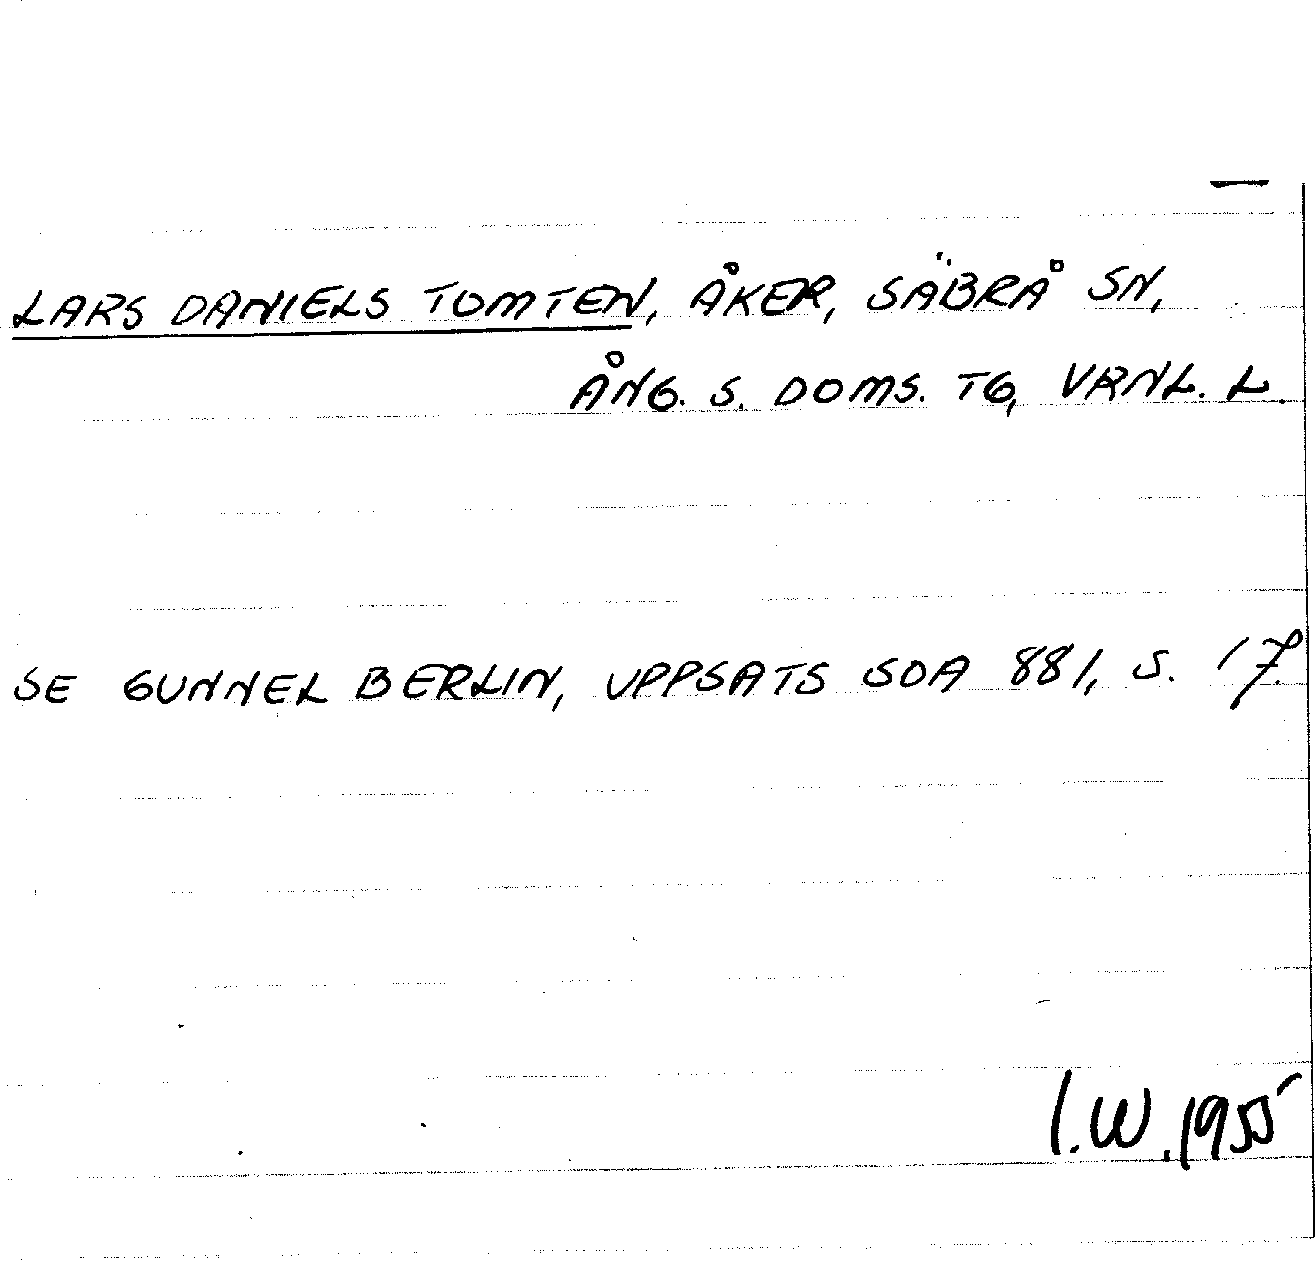 LARS DANIELS TOMTEN, ÅKER, SÄBRÅ SN,
ÅNG. S. DOMS. TG, VRNL. L.
SE GUNNEL BERLIN, UPPSATS SOA 881, S. 17.
I.W.1955